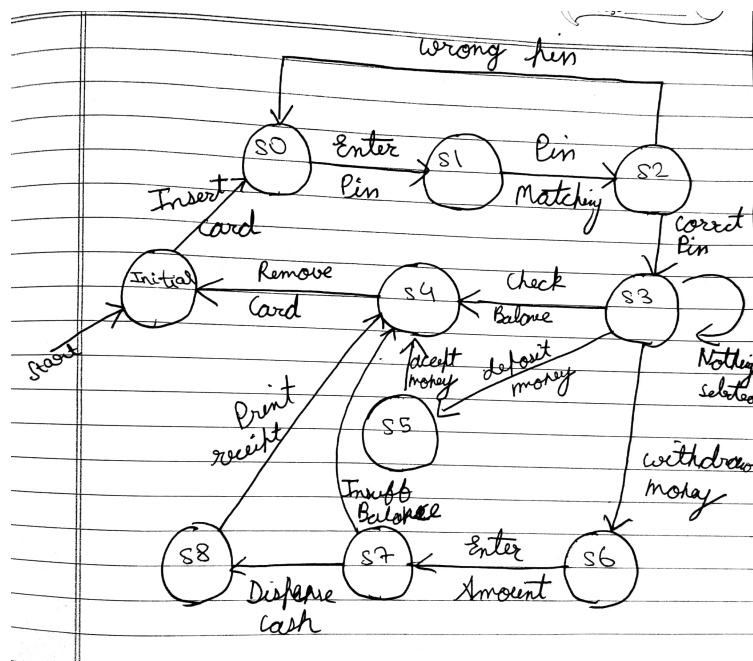 Wrong Pin
S0
Enter
Pin
S1
Pin
Matching
S2
Insert
Card
Corrct
Pin
Initial
Remove
Card
S4
Check
Balance
S3
Start
Nothing
selected
accept
money
deposit
money
Print
receipt
S5
withdraw
money
Insuff
Balance
S8
Dispense
Cash
S7
Enter
Amount
S6